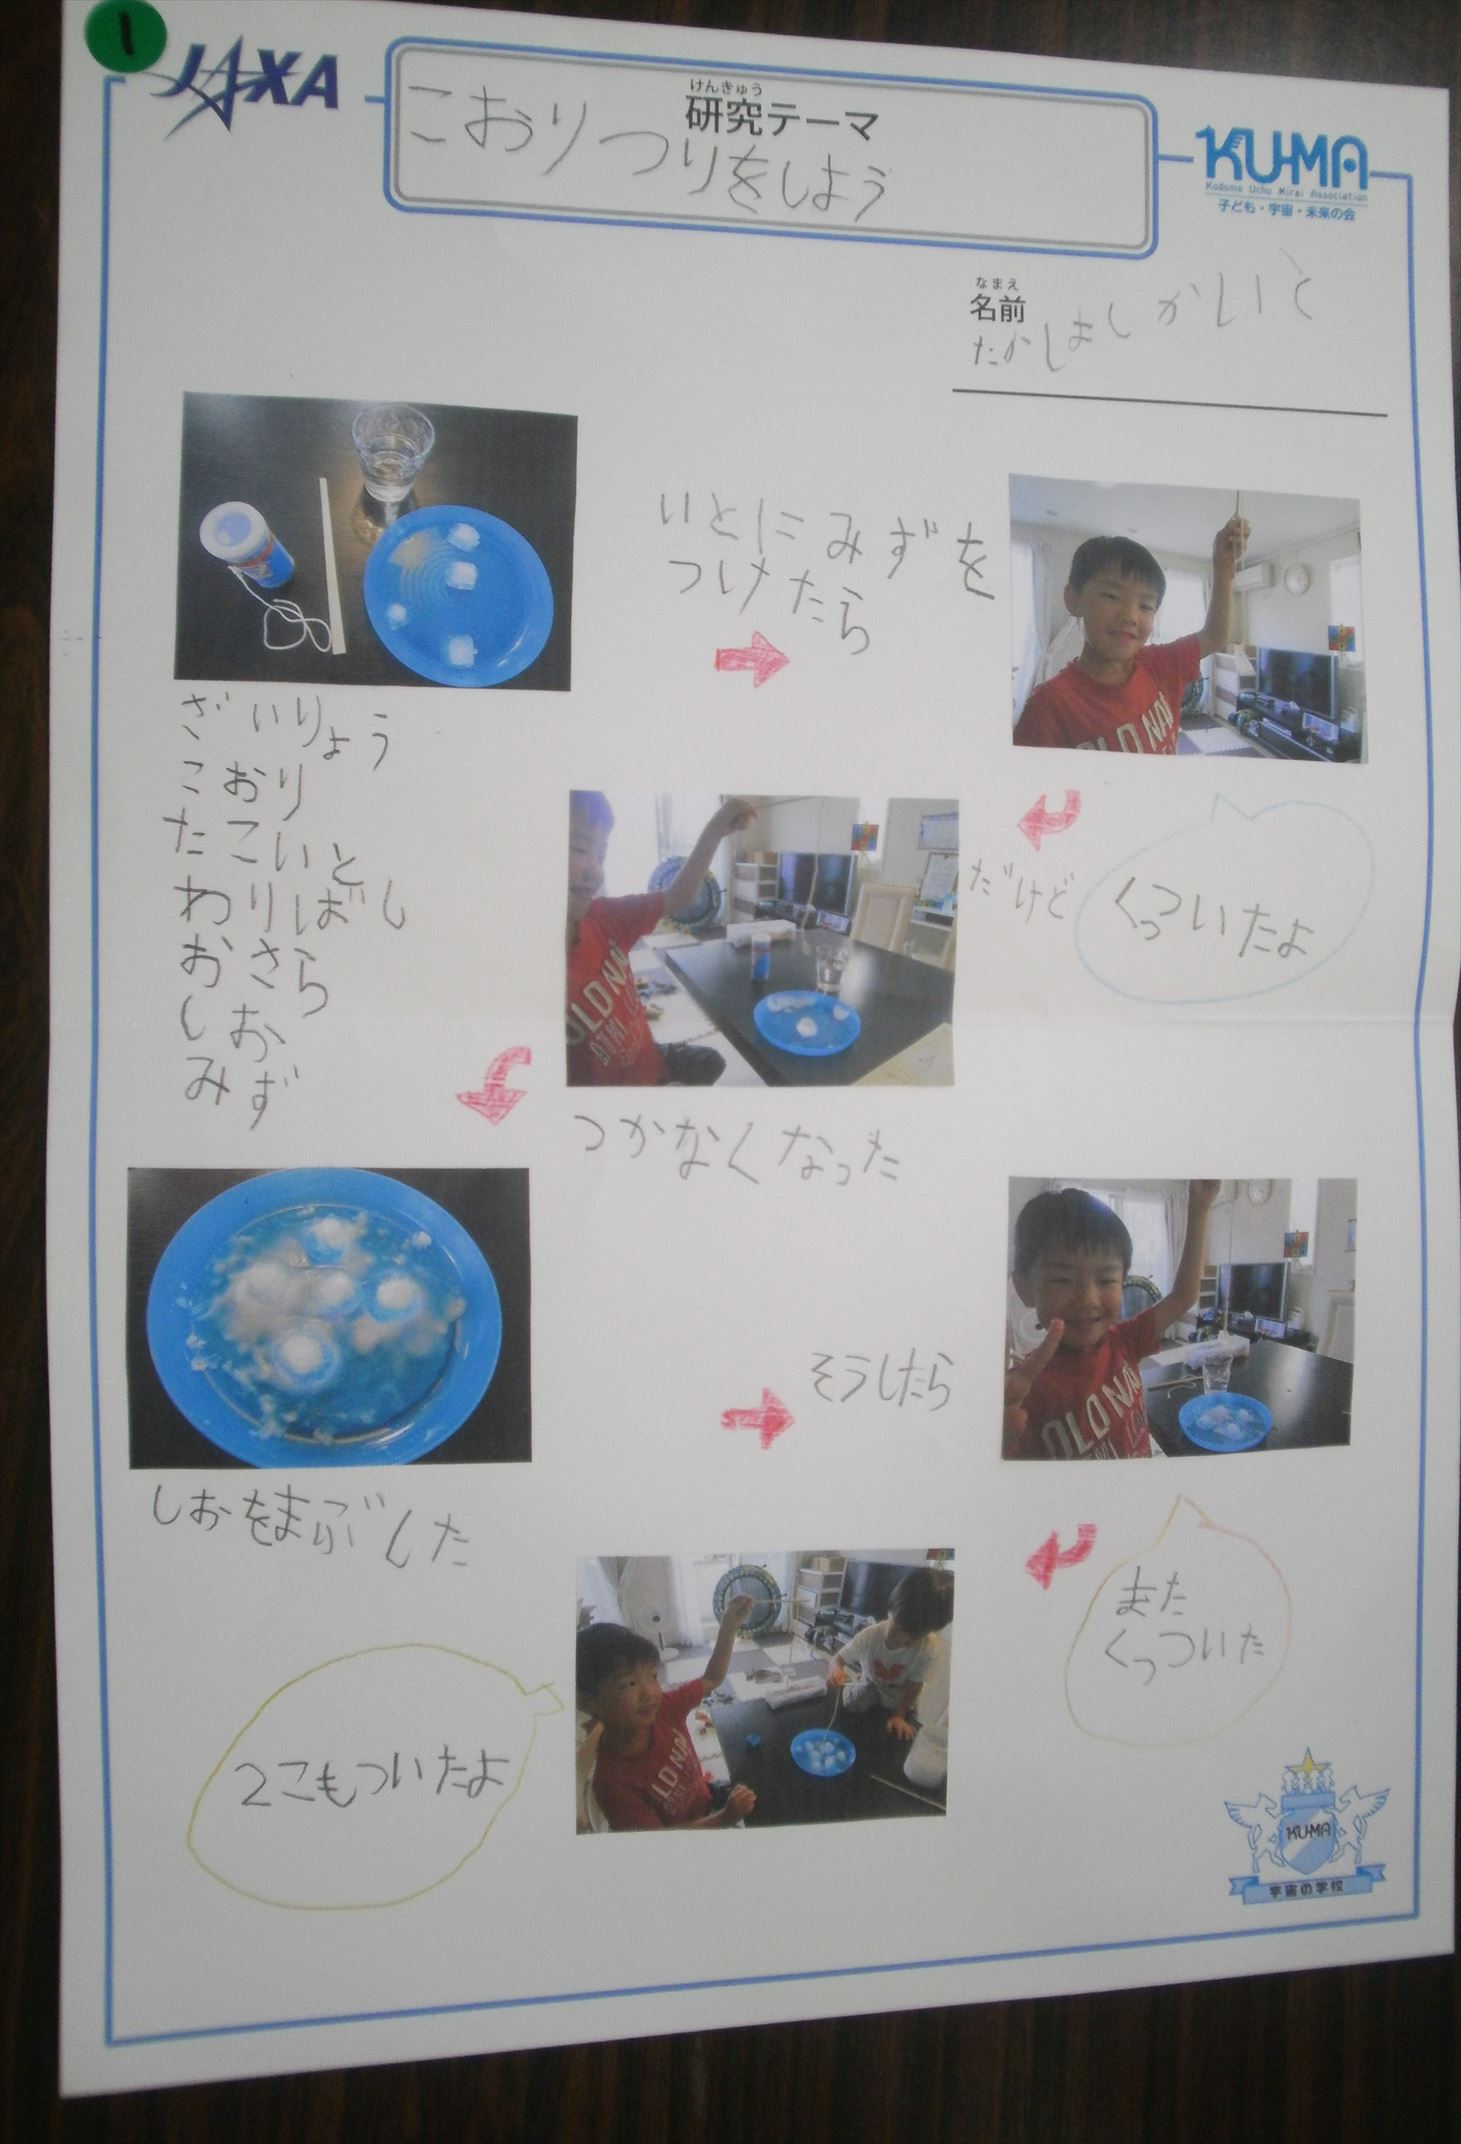 1
JAXA
けんきゅう
研究テーマ
こおりつりをしよう
KU-MA
Kodomo Uchu Mirai Association
子ども・宇宙・未来の会
なまえ
名前
たかはしかいと
いとにみずを
つけたら
OLD NAV
ざいりょう
こおり
たこいと
わりばし
おさら
しお
みず
くっついたよ
だけど
OLDNA
つかなくなった
しおをまぶした
そうしたら
OLDNA
また
くっついた
LD NA
2こもついたよ
KU-MA
宇宙の学校